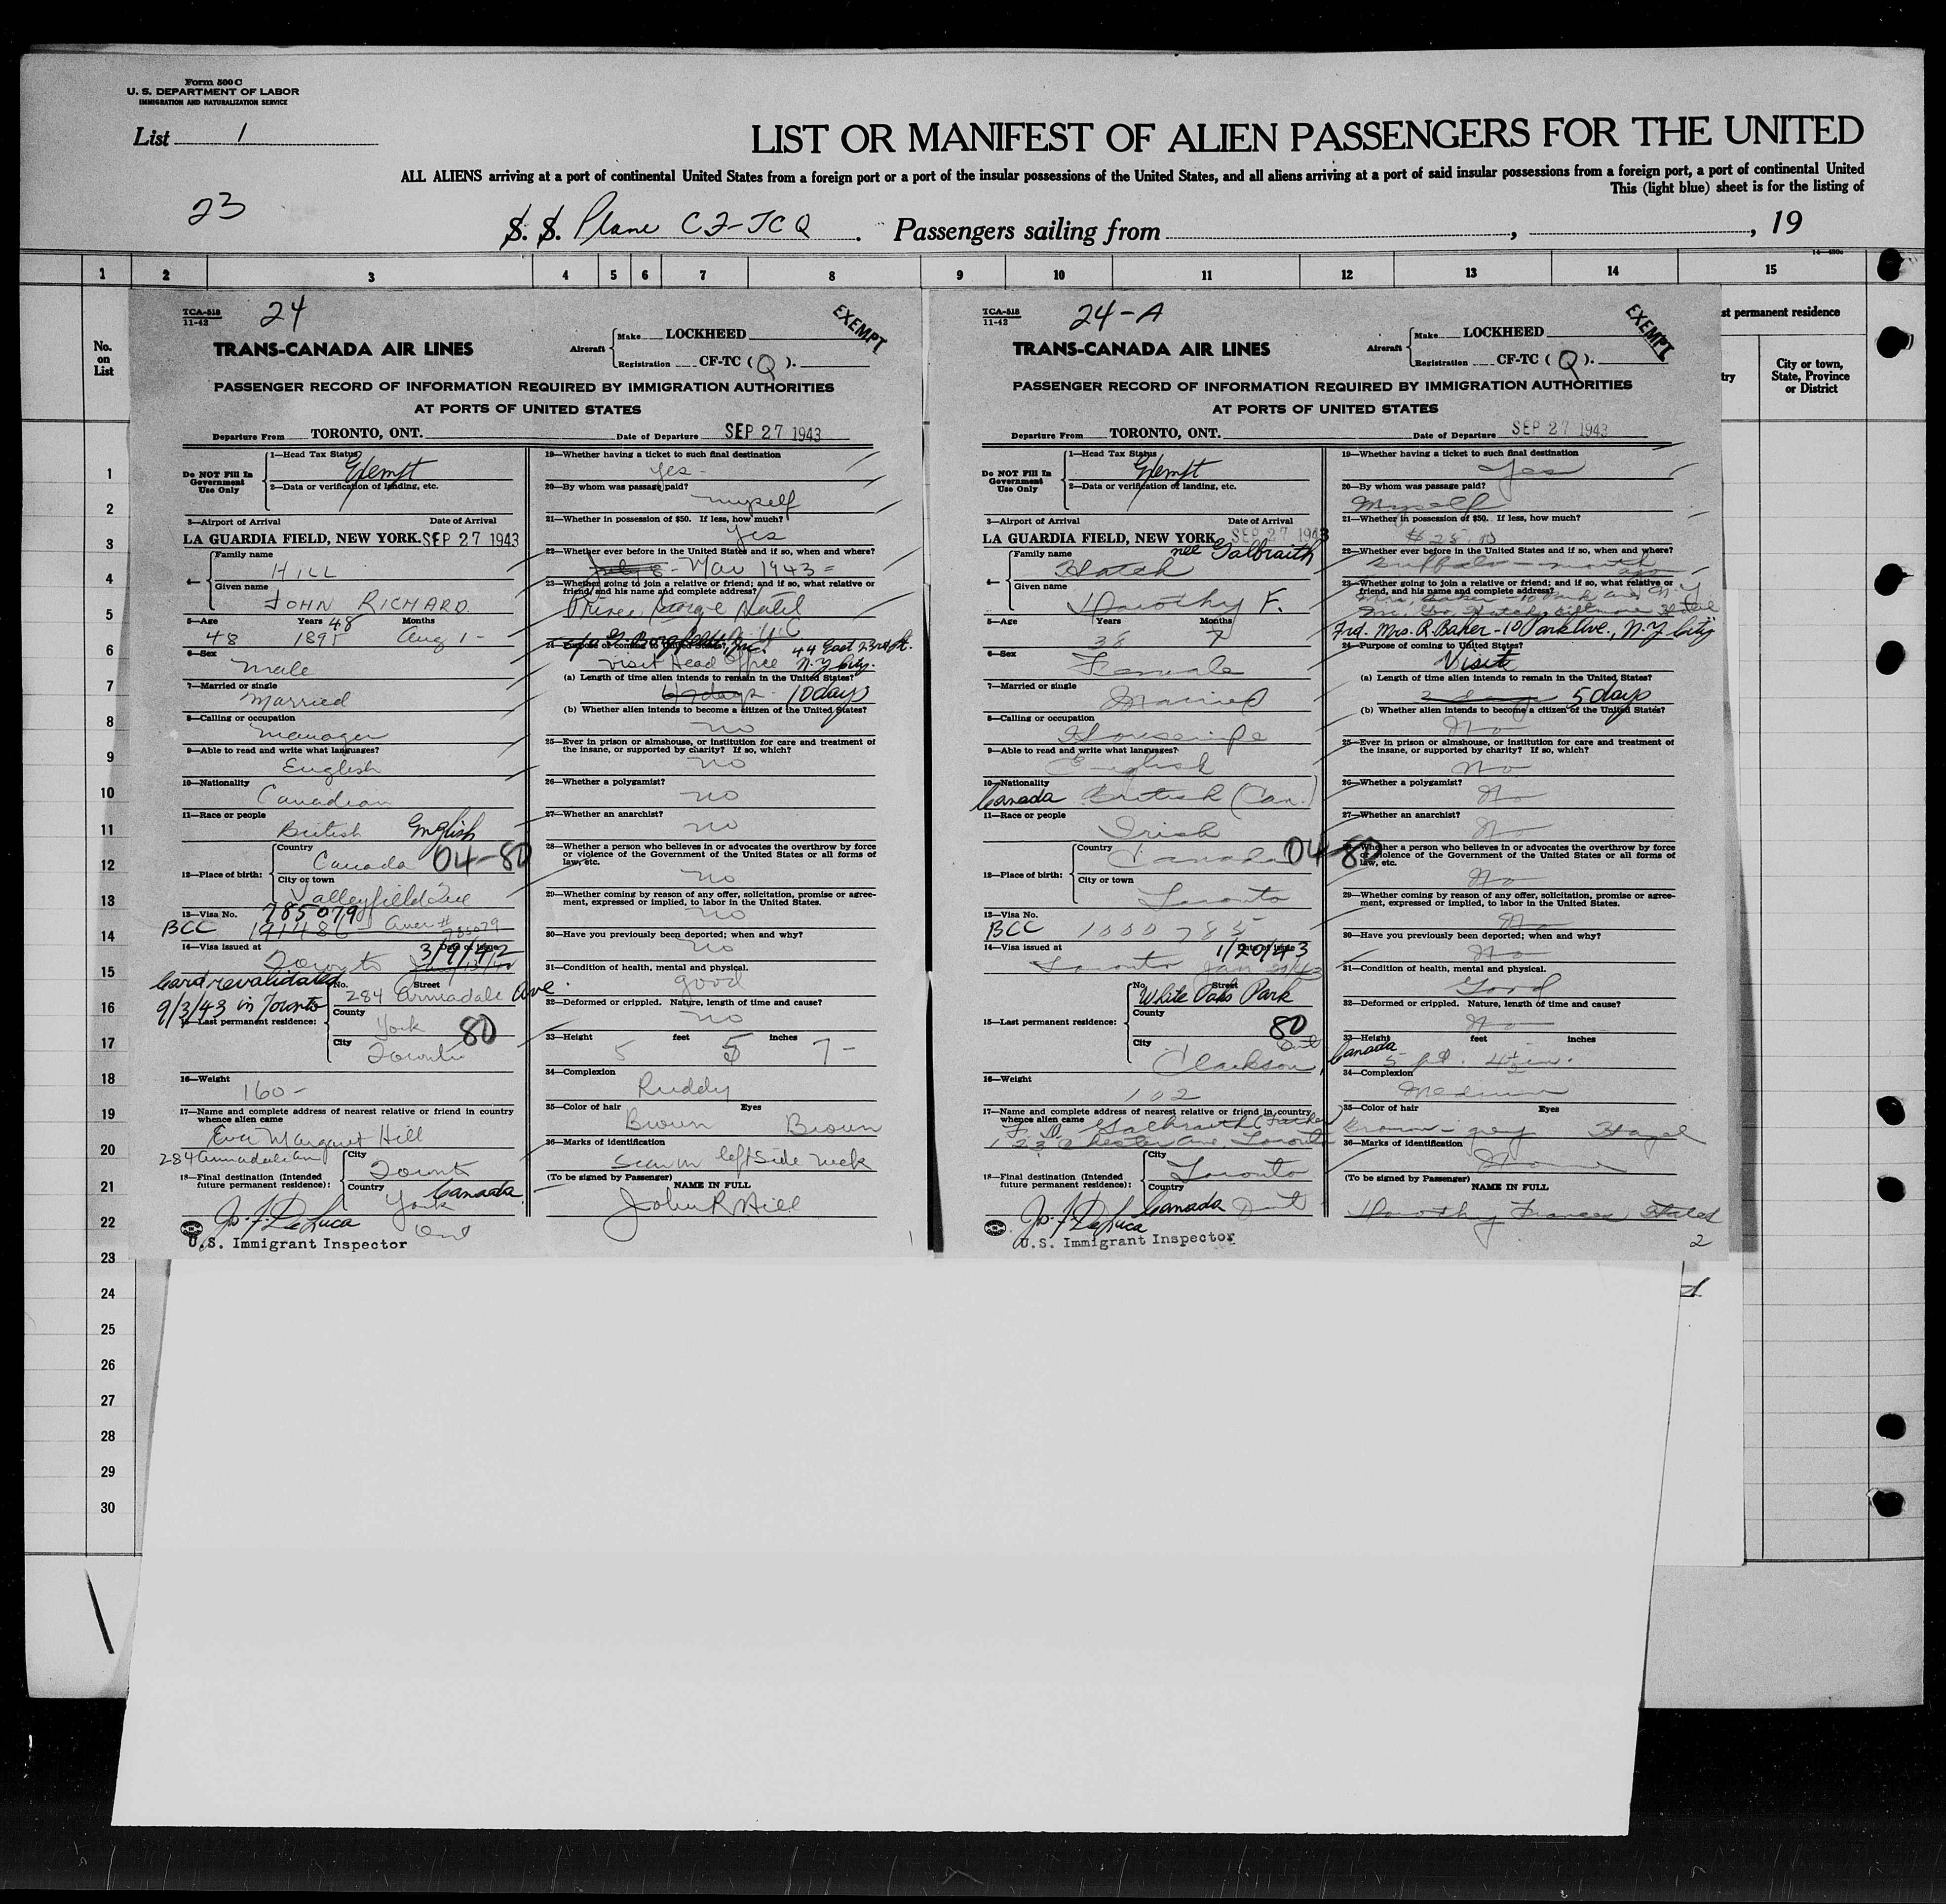 Form 500 C
U. S. DEPARTMENT OF LABOR
IMMIGRATION AND NATURALIZATION SERVICE
List 1
LIST OR MANIFEST OF ALIEN PASSENGERS FOR THE UNITED
ALL ALIENS arriving at a port of continental United States from a foreign port or a port of the insular possessions of the United States, and all aliens arriving at a port of said insular possessions from a foreign port, a port of continental United
This (light blue) sheet is for the listing of
23
S. S. Plane CF-TCQ. Passengers sailing from , , 19
1 2 3 4 5 6 7 8 9 10 11 12 13 14 15
No. on List
st permanent residence
try
City or town, State, Province or District
1
2
3
4
5
6
7
8
9
10
11
12
13
14
15
16
17
18
19
20
21
22
23
24
25
26
27
28
29
30
TCA-518
11-42
24
EXEMPT
TRANS-CANADA AIR LINES
Aircraft
Make LOCKHEED
Registration CF-TC (Q).
PASSENGER RECORD OF INFORMATION REQUIRED BY IMMIGRATION AUTHORITIES
AT PORTS OF UNITED STATES
Departure From TORONTO, ONT. Date of Departure SEP 27 1943
Do NOT Fill In Government Use Only
1—Head Tax Status
Exempt
2—Data or verification of landing, etc.
3—Airport of Arrival Date of Arrival
LA GUARDIA FIELD, NEW YORK. SEP 27 1943
4—
Family name
HILL
Given name
JOHN RICHARD
5—Age Years Months
48 1895 48 Aug 1-
6—Sex
male
7—Married or single
Married
8—Calling or occupation
Manager
9—Able to read and write what languages?
English
10—Nationality
Canadian
11—Race or people
British English
12—Place of birth:
Country
Canada 04-80
City or town
Valleyfield Que
13—Visa No.
785079
BCC 191486
14—Visa issued at Date of issue
Toronto 3/9/42
Card revalidated
9/3/43 in Toronto
15—Last permanent residence:
No. Street
284 Armadale Ave.
County
York 80
City
Toronto
16—Weight
160-
17—Name and complete address of nearest relative or friend in country whence alien came
Eva Margaret Hill
284 Armadale Av
18—Final destination (Intended future permanent residence):
City
Toronto
Country
York Canada
Ont
Jos. F. DeLuca
U.S. Immigrant Inspector
19—Whether having a ticket to such final destination
Yes-
20—By whom was passage paid?
myself
21—Whether in possession of $50. If less, how much?
Yes
22—Whether ever before in the United States and if so, when and where?
Mar 1943=
23—Whether going to join a relative or friend; and if so, what relative or friend, and his name and complete address?
Prince George Hotel
44 East 23rd St.
24—Purpose of coming to United States?
Visit Head Office N.Y. City.
(a) Length of time alien intends to remain in the United States?
10 days
(b) Whether alien intends to become a citizen of the United States?
no
25—Ever in prison or almshouse, or institution for care and treatment of the insane, or supported by charity? If so, which?
no
26—Whether a polygamist?
no
27—Whether an anarchist?
no
28—Whether a person who believes in or advocates the overthrow by force or violence of the Government of the United States or all forms of law, etc.
no
29—Whether coming by reason of any offer, solicitation, promise or agreement, expressed or implied, to labor in the United States.
no
30—Have you previously been deported; when and why?
no
31—Condition of health, mental and physical.
good
32—Deformed or crippled. Nature, length of time and cause?
no
33—Height feet inches
5 5 7-
34—Complexion
Ruddy
35—Color of hair Eyes
Brown Brown
36—Marks of identification
Scar on left side neck
(To be signed by Passenger) NAME IN FULL
John R Hill
1
TCA-518
11-42
24-A
EXEMPT
TRANS-CANADA AIR LINES
Aircraft
Make LOCKHEED
Registration CF-TC (Q).
PASSENGER RECORD OF INFORMATION REQUIRED BY IMMIGRATION AUTHORITIES
AT PORTS OF UNITED STATES
Departure From TORONTO, ONT. Date of Departure SEP 27 1943
Do NOT Fill In Government Use Only
1—Head Tax Status
Exempt
2—Data or verification of landing, etc.
3—Airport of Arrival Date of Arrival
LA GUARDIA FIELD, NEW YORK. SEP 27 1943
4—
Family name nee Galbraith
Hatch
Given name
Dorothy F.
5—Age Years Months
38 7
6—Sex
Female
7—Married or single
Married
8—Calling or occupation
Housewife
9—Able to read and write what languages?
English
10—Nationality
Canada British (Can.)
11—Race or people
Irish
12—Place of birth:
Country
Canada 04-80
City or town
Toronto
13—Visa No.
BCC 1000785
14—Visa issued at Date of issue
1/20/43
Toronto Jan 20/43
15—Last permanent residence:
No. Street
White Oaks Park
County
80
City Ont
Clarkson, Canada
16—Weight
102
17—Name and complete address of nearest relative or friend in country whence alien came
Galbraith (Father
Toronto
18—Final destination (Intended future permanent residence):
City
Toronto
Country
Canada Ont
Jos. F. DeLuca
U.S. Immigrant Inspector
19—Whether having a ticket to such final destination
Yes
20—By whom was passage paid?
Myself
21—Whether in possession of $50. If less, how much?
22—Whether ever before in the United States and if so, when and where?
Buffalo - month ago
23—Whether going to join a relative or friend; and if so, what relative or friend, and his name and complete address?
Frd. Mrs. R. Baker - 10 Park Ave., N.Y. City
24—Purpose of coming to United States?
Visit
(a) Length of time alien intends to remain in the United States?
5 days
(b) Whether alien intends to become a citizen of the United States?
No
25—Ever in prison or almshouse, or institution for care and treatment of the insane, or supported by charity? If so, which?
No
26—Whether a polygamist?
No
27—Whether an anarchist?
No
28—Whether a person who believes in or advocates the overthrow by force or violence of the Government of the United States or all forms of law, etc.
No
29—Whether coming by reason of any offer, solicitation, promise or agreement, expressed or implied, to labor in the United States.
No
30—Have you previously been deported; when and why?
No
31—Condition of health, mental and physical.
Good
32—Deformed or crippled. Nature, length of time and cause?
No
33—Height feet inches
5 ft. 4½ in.
34—Complexion
Medium
35—Color of hair Eyes
Brown - grey Hazel
36—Marks of identification
None
(To be signed by Passenger) NAME IN FULL
Dorothy Frances Hatch
2